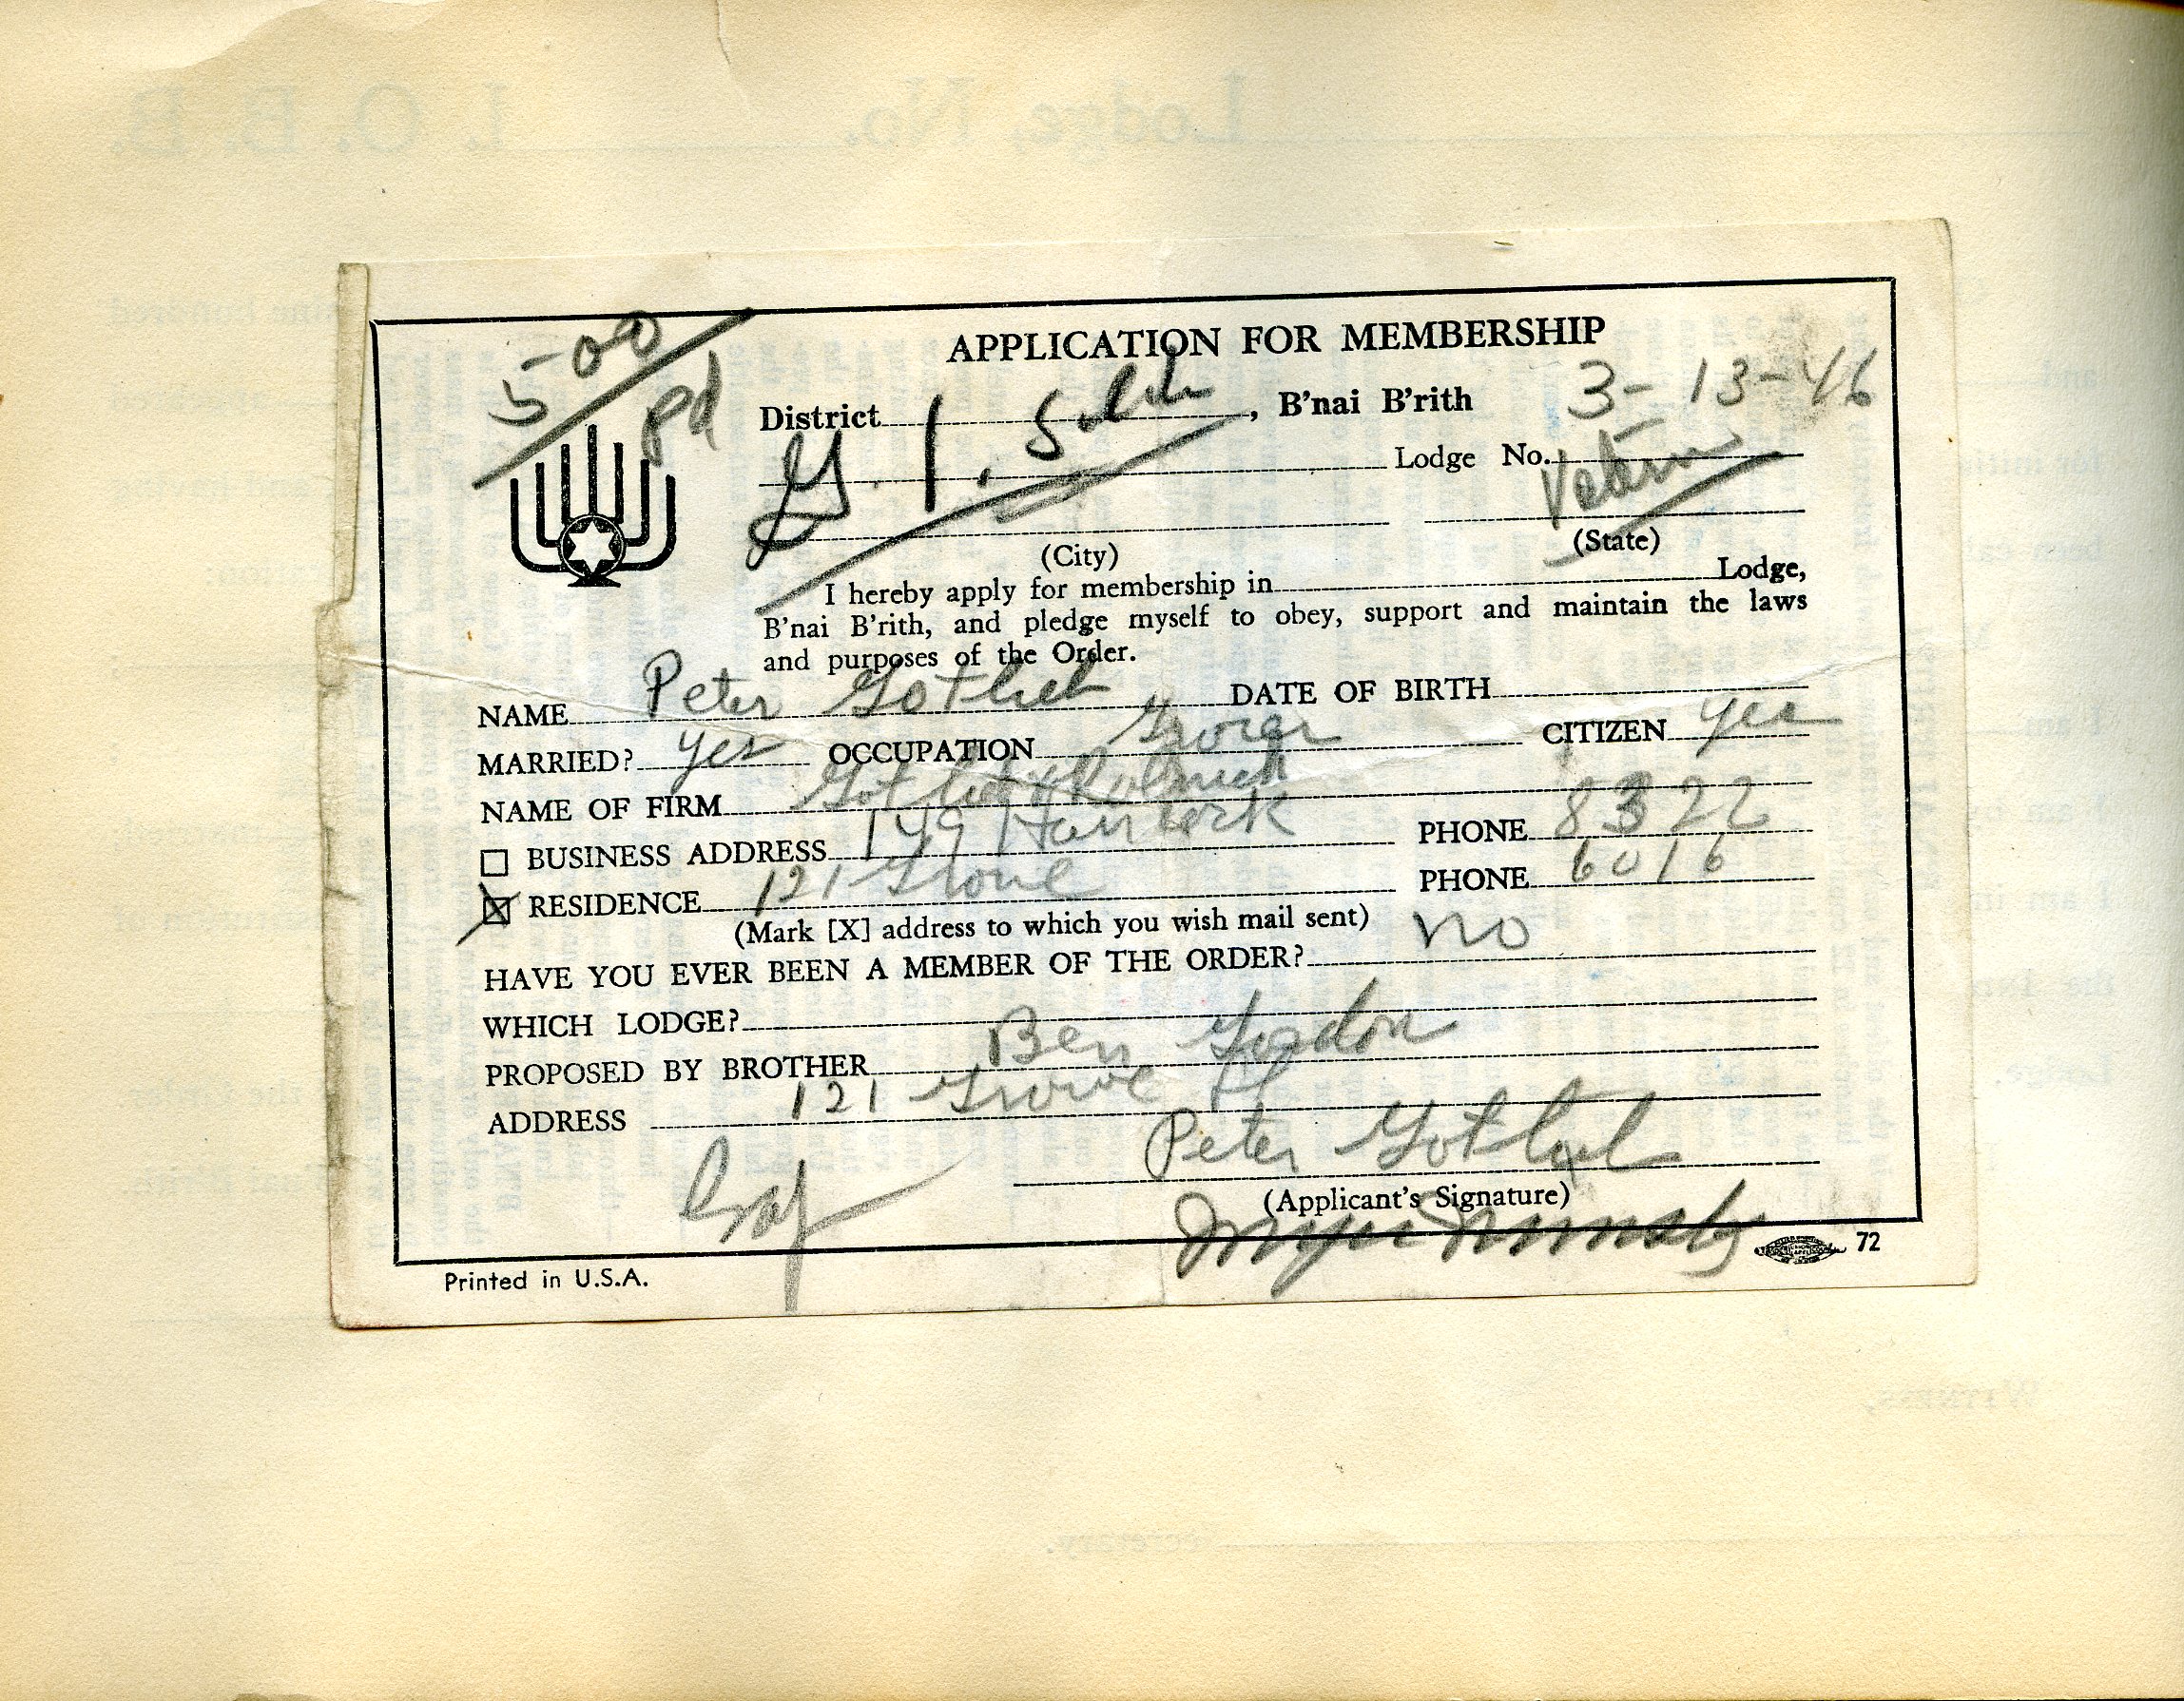 I. O. B. B.
Lodge, No.
5-00
pd
APPLICATION FOR MEMBERSHIP
3-13-46
District , B'nai B'rith
G. I.
Lodge No.
Veteran
(City) (State)
I hereby apply for membership in Lodge,
B'nai B'rith, and pledge myself to obey, support and maintain the laws
and purposes of the Order.
NAME Peter Gotlieb DATE OF BIRTH
MARRIED? yes OCCUPATION Grocer CITIZEN yes
NAME OF FIRM
BUSINESS ADDRESS 149 Hancock PHONE 8322
RESIDENCE 121 Grove PHONE 6016
(Mark [X] address to which you wish mail sent)
HAVE YOU EVER BEEN A MEMBER OF THE ORDER? no
WHICH LODGE?
PROPOSED BY BROTHER Ben Gordon
ADDRESS 121 Grove St
Peter Gotlieb
(Applicant's Signature)
72
Printed in U.S.A.
WITNESS,
Secretary.